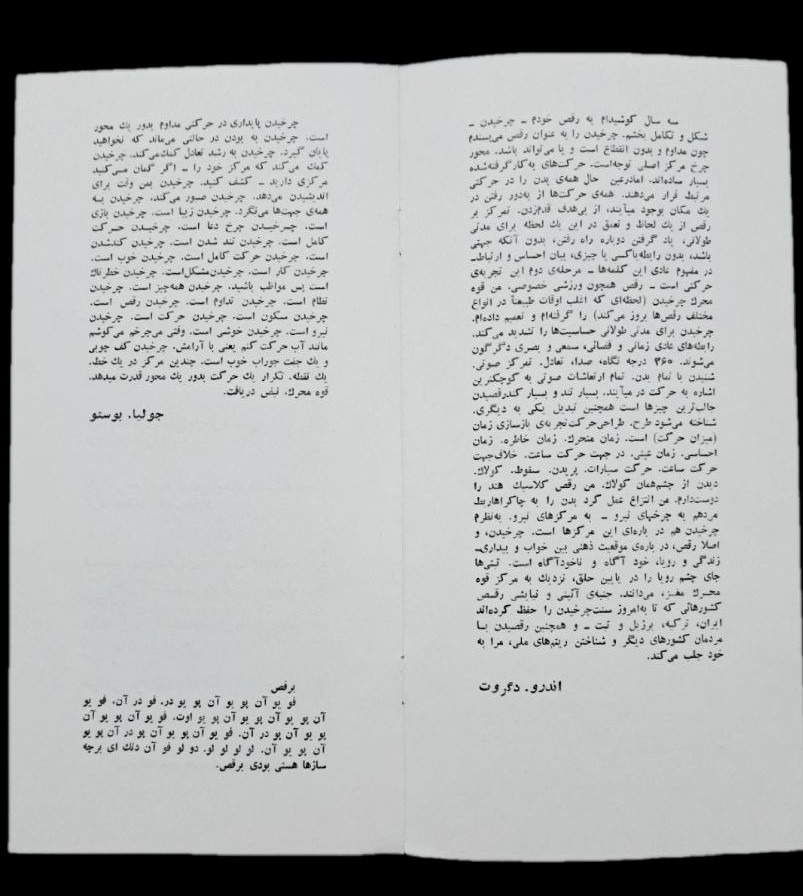 سه سال کوشیده‌ام به رقص خودم ــ چرخیدن ــ
شکل و تکامل بخشم. چرخیدن را به عنوان رقص می‌پسندم
چون مداوم و بدون انقطاع است و یا می‌تواند باشد. محور
چرخ مرکز اصلی توجه‌است. حرکت‌های به‌کارگرفته‌شده
بسیار ساده‌اند. امادرعین حال همه‌ی بدن را در حرکتی
مرتبط قرار می‌دهند. همه‌ی حرکت‌ها از به‌دور رفتن در
یك مکان بوجود میآیند، از بی‌هدف قدم‌زدن. تمرکز بر
رقص از یك لحاظ و تعمق در این یك لحظه برای مدتی
طولانی، یاد گرفتن دوباره راه رفتن، بدون آنکه جهتی
باشد، بدون رابطه‌باکسی یا چیزی، بیان احساس و ارتباط‌ــ
در مفهوم عادی این کلمه‌ها ــ مرحله‌ی دوم این تجربه‌ی
حرکتی است ــ رقص همچون ورزشی خصوصی. من قوه
محرك چرخیدن (لحظه‌ای که اغلب اوقات طبیعتاً در انواع
مختلف رقص‌ها بروز می‌کند) را گرفته‌ام و تعمیم داده‌ام.
چرخیدن برای مدتی طولانی حساسیت‌ها را تشدید می‌کند.
رابطه‌های عادی زمانی و فضائی، سمعی و بصری دگرگون
می‌شوند. ۳۶۰ درجه نگاه، صدا، تعادل. تمرکز صوتی.
شنیدن با تمام بدن. تمام ارتعاشات صوتی به کوچکترین
اشاره به حرکت در میآیند. بسیار تند و بسیار کندرقصیدن
جالب‌ترین چیزها است همچنین تبدیل یکی به دیگری.
شناخته می‌شود طرح. طراحی‌حرکت‌تجربه‌ی بازسازی زمان
(میزان حرکت) است. زمان متحرك. زمان خاطره. زمان
احساسی. زمان عینی. در جهت حرکت ساعت. خلاف‌جهت
حرکت ساعت. حرکت سیارات. پریدن. سقوط. کولاك.
دیدن از چشم‌همان کولاك. من رقص کلاسیك هند را
دوست‌دارم. من انتزاع عمل کرد بدن را به چاکراهاربط
میدهم به چرخهای نیرو ــ به مرکزهای نیرو. به‌نظرم
چرخیدن هم در باره‌ای این مرکزها است. چرخیدن، و
اصلا رقص، در باره‌ی موقعیت ذهنی بین خواب و بیداری‌ــ
زندگی و رویا، خود آگاه و ناخودآگاه است. تبتی‌ها
جای چشم رویا را در پایین حلق، نزدیك به مرکز قوه
محرك مغز، می‌دانند. جنبه‌ی آئینی و نیایشی رقص
کشورهائی که تا به‌امروز سنت‌چرخیدن را حفظ کرده‌اند
ایران، ترکیه، برزیل و تبت ــ و همچنین رقصیدن با
مردمان کشورهای دیگر و شناختن ریتم‌های ملی، مرا به
خود جلب می‌کند.
اندرو. دگروت
چرخیدن پایداری در حرکتی مداوم بدور یك محور
است. چرخیدن به بودن در حالتی می‌ماند که نخواهید
پایان گیرد. چرخیدن به رشد تعادل کمك‌می‌کند. چرخیدن
کمك می‌کند که مرکز خود را ــ اگر گمان می‌کنید
مرکزی دارید ــ کشف کنید. چرخیدن بمن وقت برای
اندیشیدن می‌دهد. چرخیدن صبور می‌کند. چرخیدن به
همه‌ی جهت‌ها می‌نگرد. چرخیدن زیبا است. چرخیدن بازی
است. چرخیدن چرخ دعا است. چرخیدن حرکت
کامل است. چرخیدن تند شدن است. چرخیدن کندشدن
است. چرخیدن حرکت کامل است. چرخیدن خوب است.
چرخیدن کار است. چرخیدن‌مشکل‌است. چرخیدن خطرناك
است پس مواظب باشید. چرخیدن همه‌چیز است. چرخیدن
نظام است. چرخیدن تداوم است. چرخیدن رقص است.
چرخیدن سکون است. چرخیدن حرکت است. چرخیدن
نیرو است. چرخیدن خوشی است. وقتی می‌چرخم می‌کوشم
مانند آب حرکت کنم یعنی با آرامش. چرخیدن کف چوبی
و یك جفت جوراب خوب است. چندین مرکز در یك خط.
یك نقطه. تکرار یك حرکت بدور یك محور قدرت میدهد.
قوه محرك. نبض دریافت.
جولیا. بوستو
برقص
فو یو آن یو یو آن یو یو در. فو در آن. فو یو
آن یو یو آن یو یو آن یو یو اوت. فو یو آن یو یو آن
یو یو آن یو در آن. فو یو آن یو یو آن یو در آن یو یو
آن یو یو آن. لو لو لو لو. دو لو فو آن دنك ای برچه
سازها هستی بودی برقص.